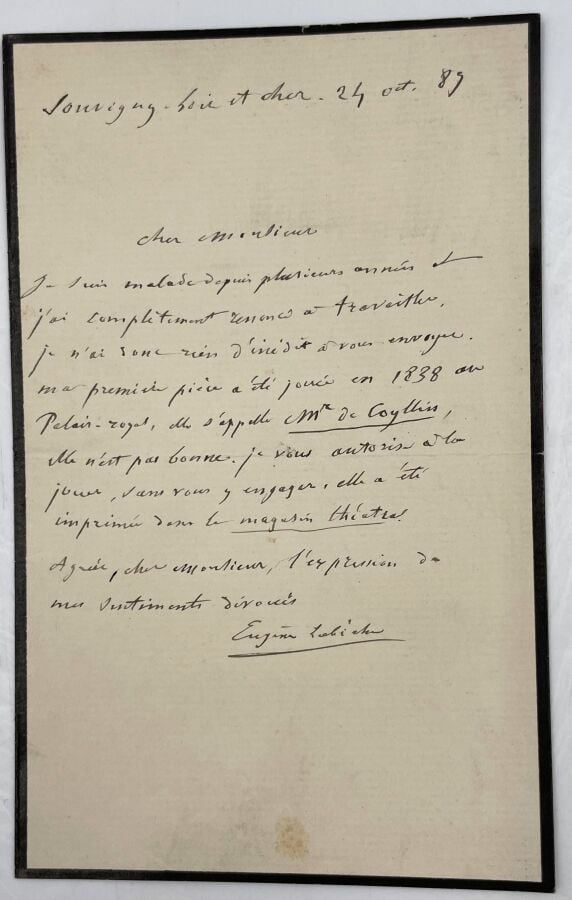 Souvigny - Loir et Cher - 24 oct. 89
cher Monsieur
Je suis malade depuis plusieurs années et
j'ai complètement renoncé à travailler.
je n'ai donc rien d'inédit à vous envoyer.
ma première pièce a été jouée en 1838 au
Palais-royal, elle s'appelle Mr de Coyllin,
elle n'est pas bonne. je vous autorise à la
jouer, sans vous y engager. elle a été
imprimée dans le magasin théatral.
Agréez, cher Monsieur, l'expression de
mes sentiments dévoués
Eugène Labiche